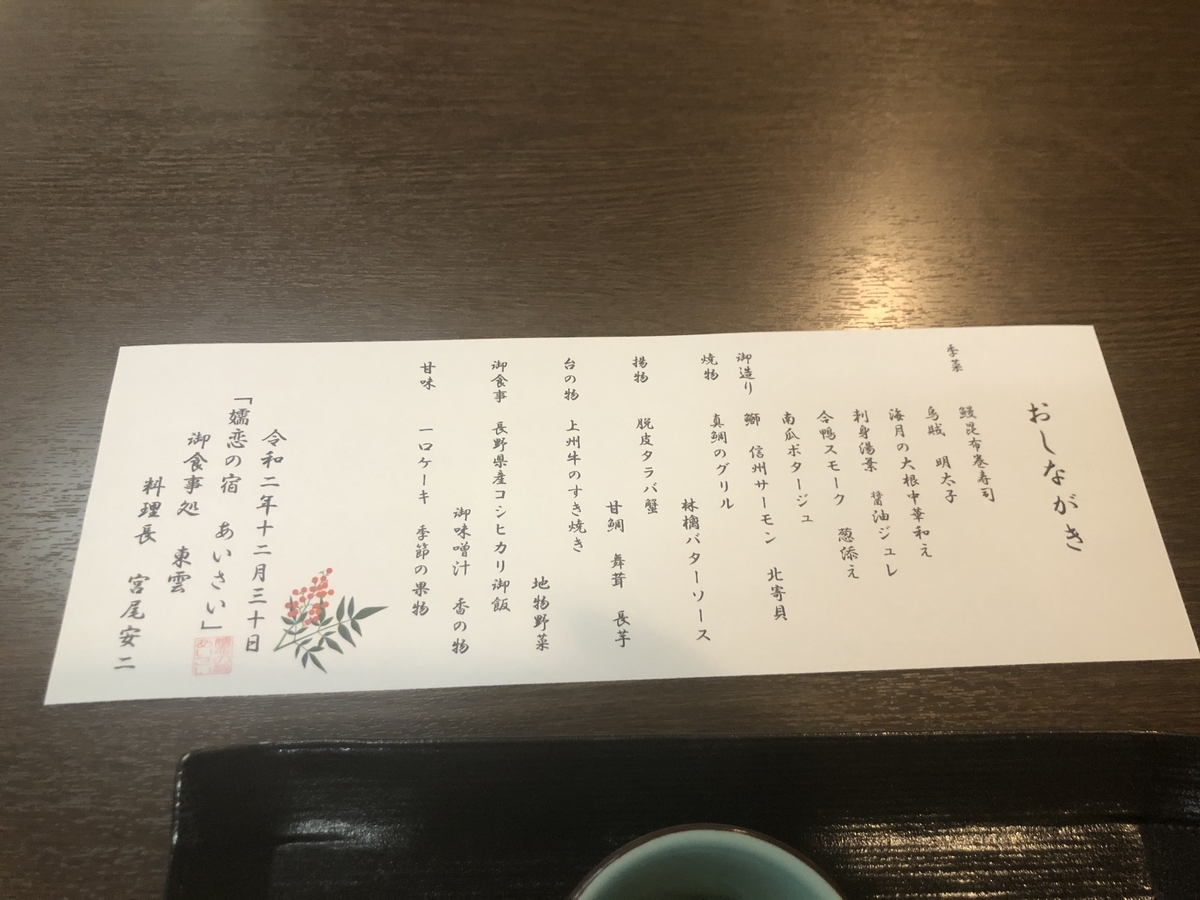 おしながき
季菜
鰻昆布巻寿司
烏賊 明太子
海月の大根中華和え
刺身湯葉 醤油ジュレ
合鴨スモーク 葱添え
南瓜ポタージュ
御造り 鰤 信州サーモン 北寄貝
焼物 真鯛のグリル
林檎バターソース
揚物 脱皮タラバ蟹
甘鯛 舞茸 長芋
台の物 上州牛のすき焼き
地物野菜
御食事 長野県産コシヒカリ御飯
御味噌汁 香の物
甘味 一口ケーキ 季節の果物
令和二年十二月三十日
「嬬恋の宿 あいさい」
御食事処 東雲
料理長 宮尾安二